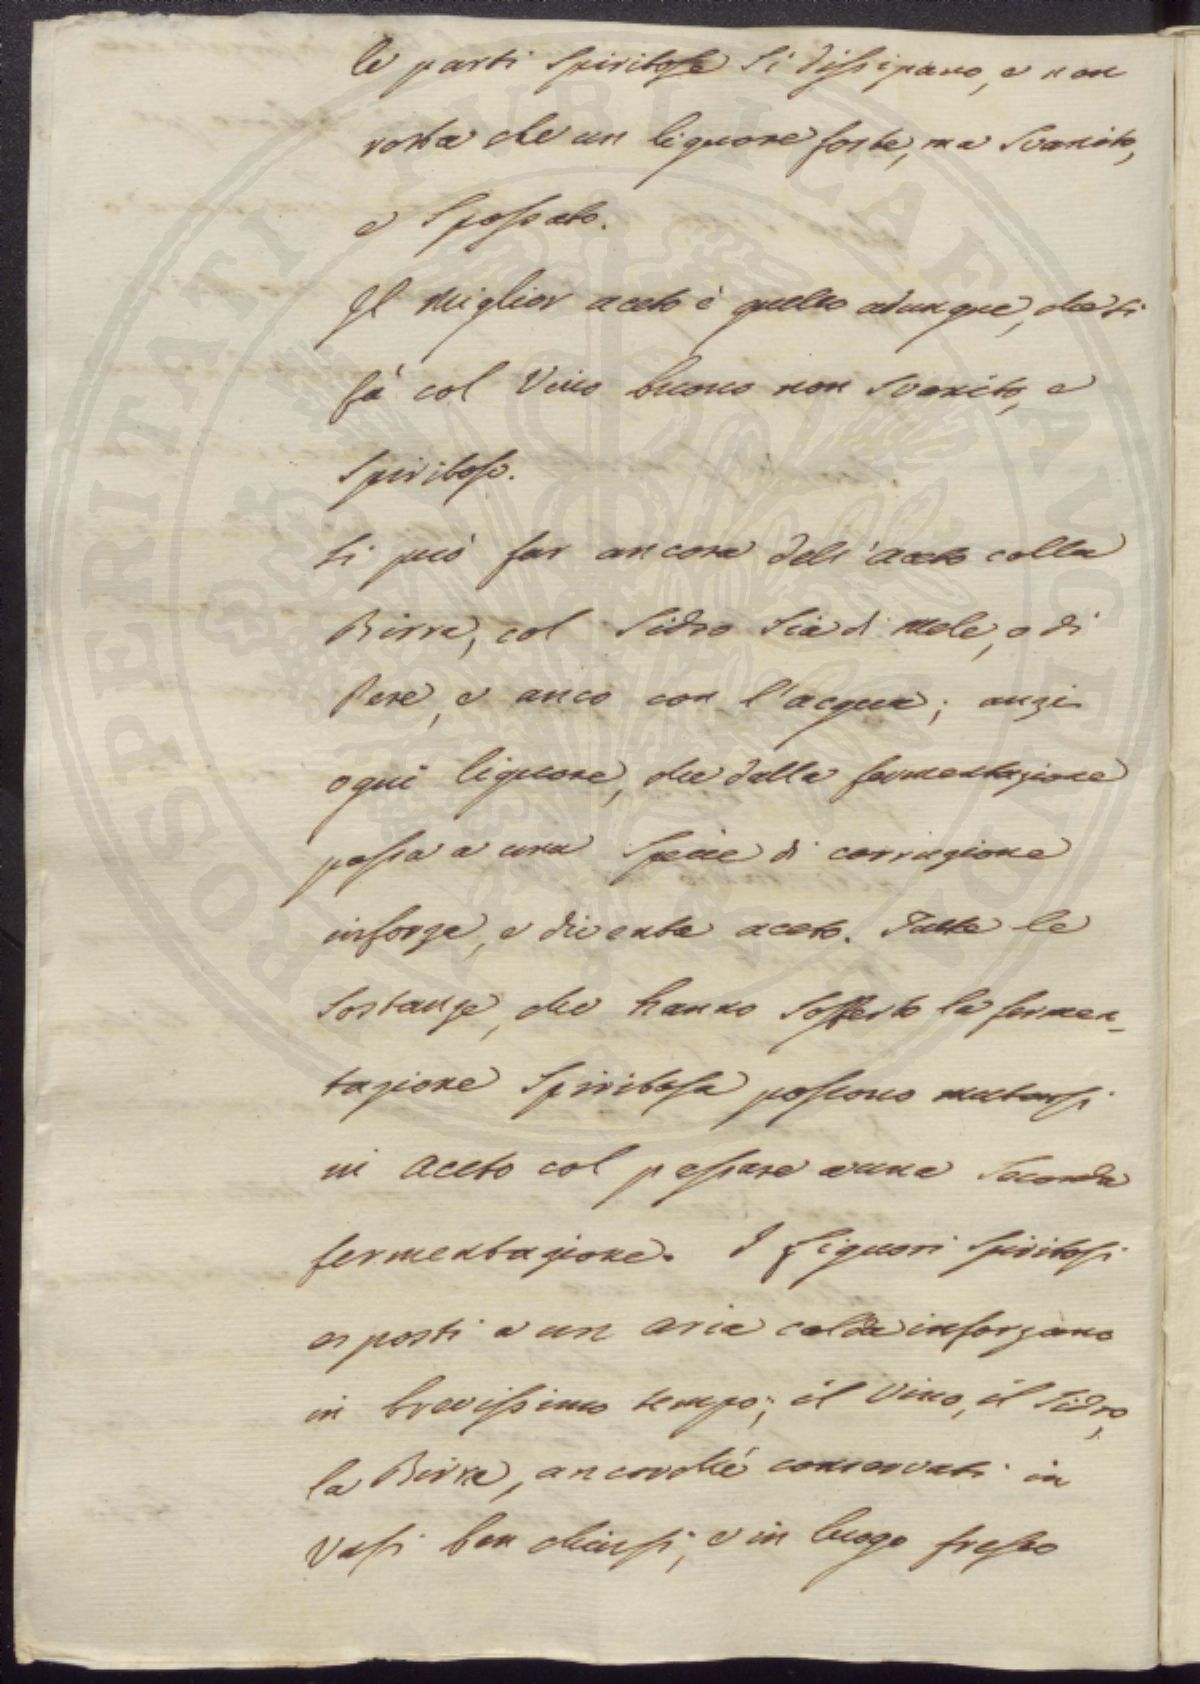 le parti spiritose si dissipano, e non
resta che un liquore forte, ma svanito,
e spossato.
Il miglior aceto è quello adunque, che si
fà col Vino buono non svanito, e
spiritoso.
Si può far ancora dell'aceto colla
Birra, col Sidro sia di Mele, o di
Pere, e anco con l'acqua; anzi
ogni liquore, che dalla fermentazione
passa a una specie di corruzione
inforza, e diventa aceto. Tutte le
sostanze, che hanno sofferto la fermen-
tazione spiritosa possono mutarsi
in aceto col passare a una seconda
fermentazione. I Liquori spiritosi
esposti a un aria calda inforzano
in brevissimo tempo; il Vino, il Sidro,
la Birra, ancorché conservati in
Vasi ben chiusi, e in luogo fresco
PROSPERITATI PUBLICAE AUGENDAE